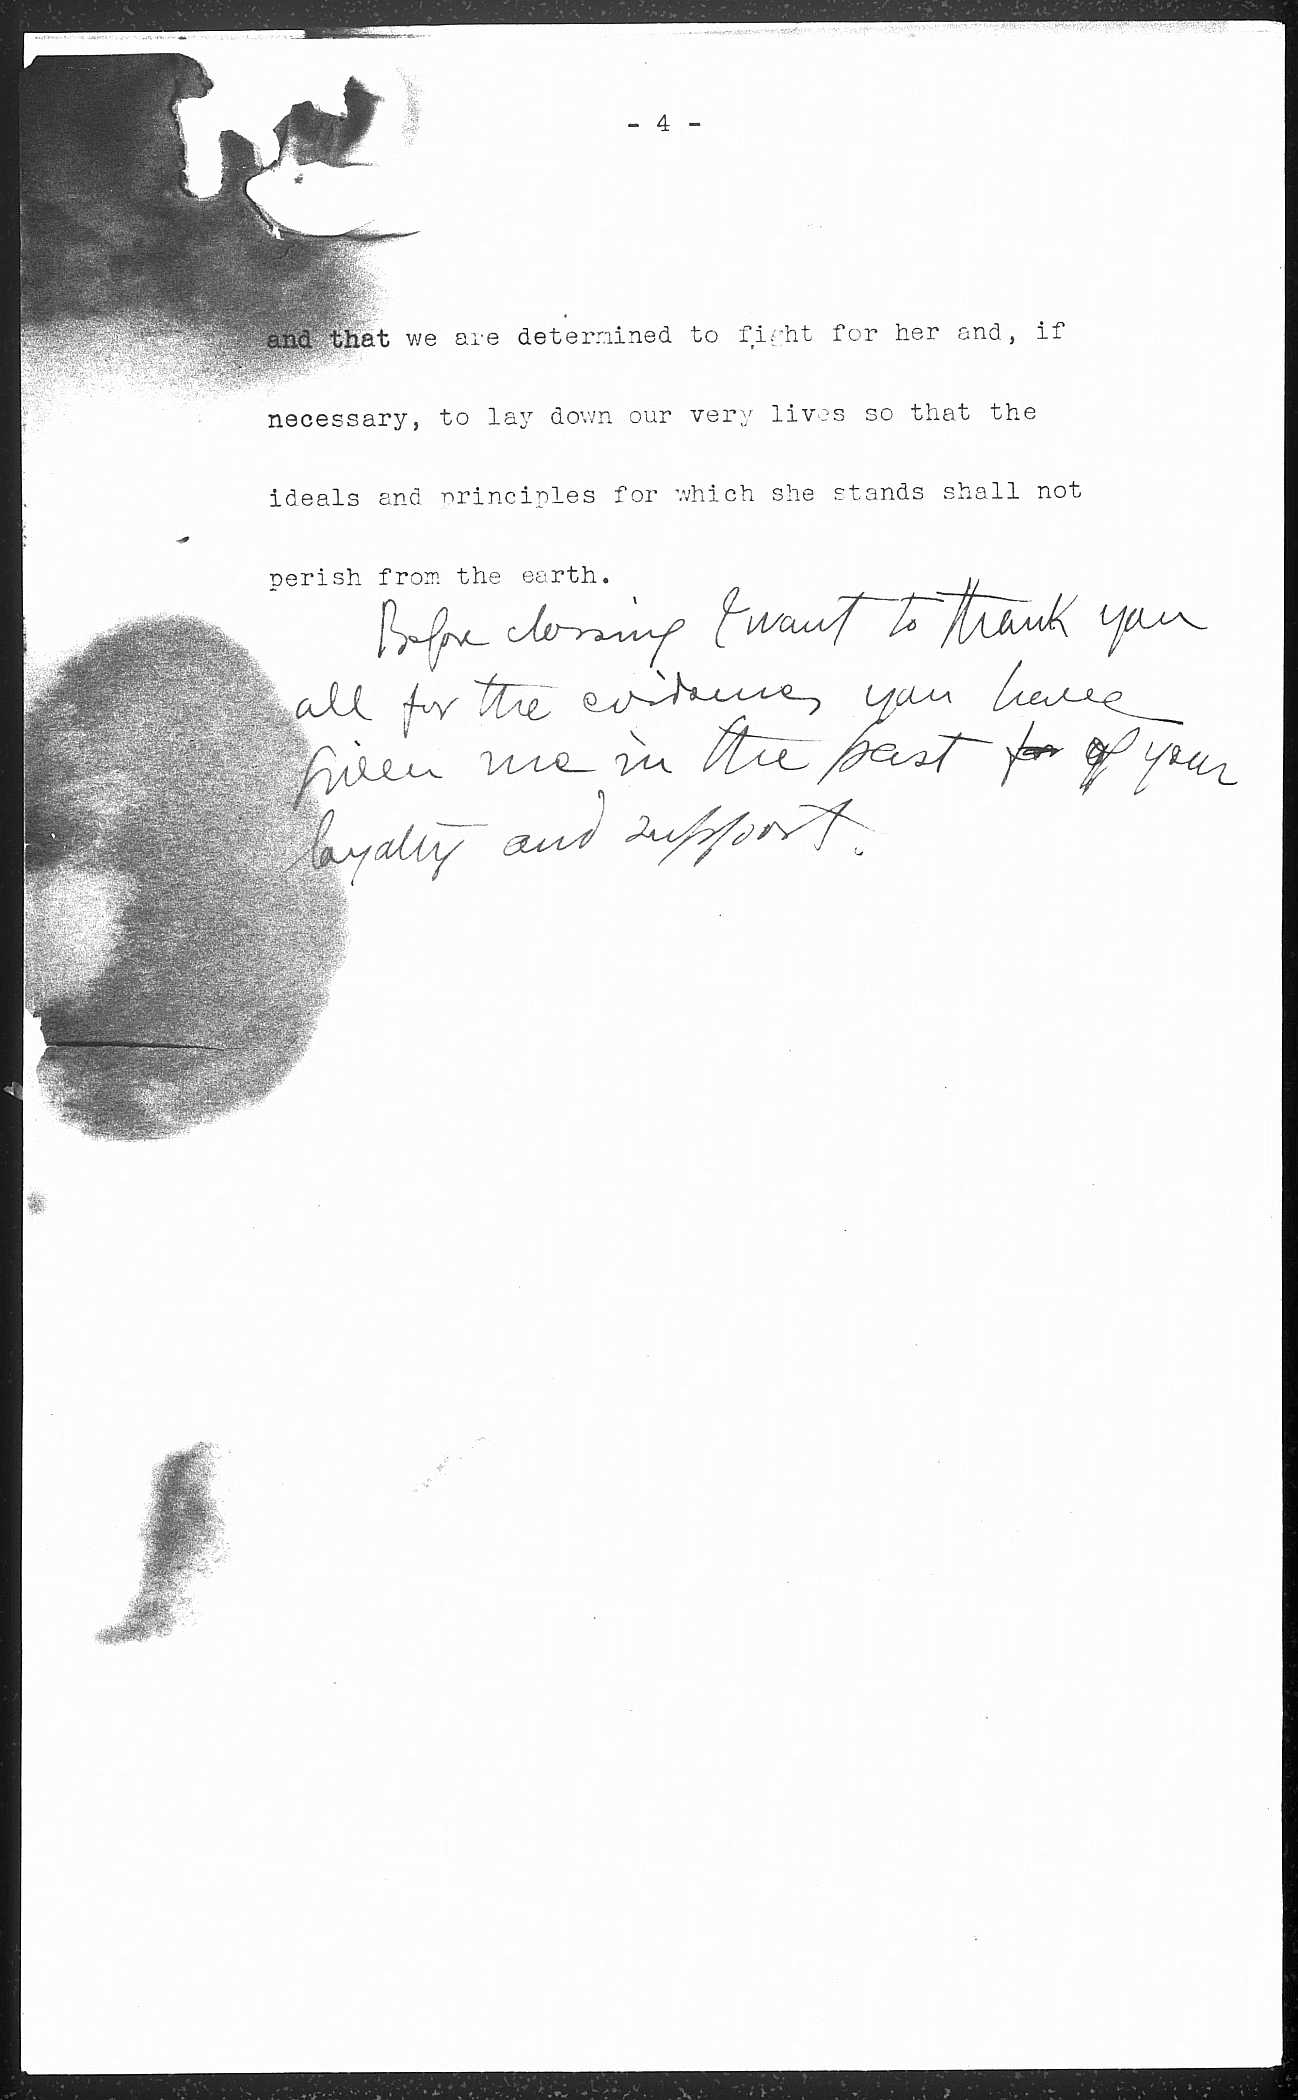 - 4 -
and that we are determined to fight for her and, if
necessary, to lay down our very lives so that the
ideals and principles for which she stands shall not
perish from the earth.
Before closing I want to thank you
all for the evidences you have
given me in the past for of your
loyalty and support.